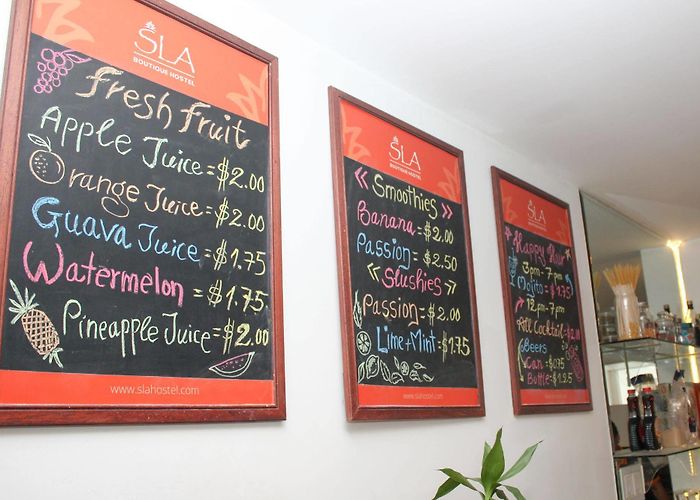 SLA
BOUTIQUE HOSTEL
Fresh Fruit
Apple Juice = $2.00
Orange Juice = $2.00
Guava Juice = $1.75
Watermelon = $1.75
Pineapple Juice = $2.00
www.slahostel.com
SLA
BOUTIQUE HOSTEL
« Smoothies »
Banana = $2.00
Passion = $2.50
« Slushies »
Passion = $2.00
Lime + Mint = $1.75
www.slahostel.com
SLA
BOUTIQUE HOSTEL
Happy Hour
3pm - 7pm
Mojito = $1.75
12pm - 7pm
All Cocktail = $2.00
Beers
Can = $0.75
Buttle = $1.25